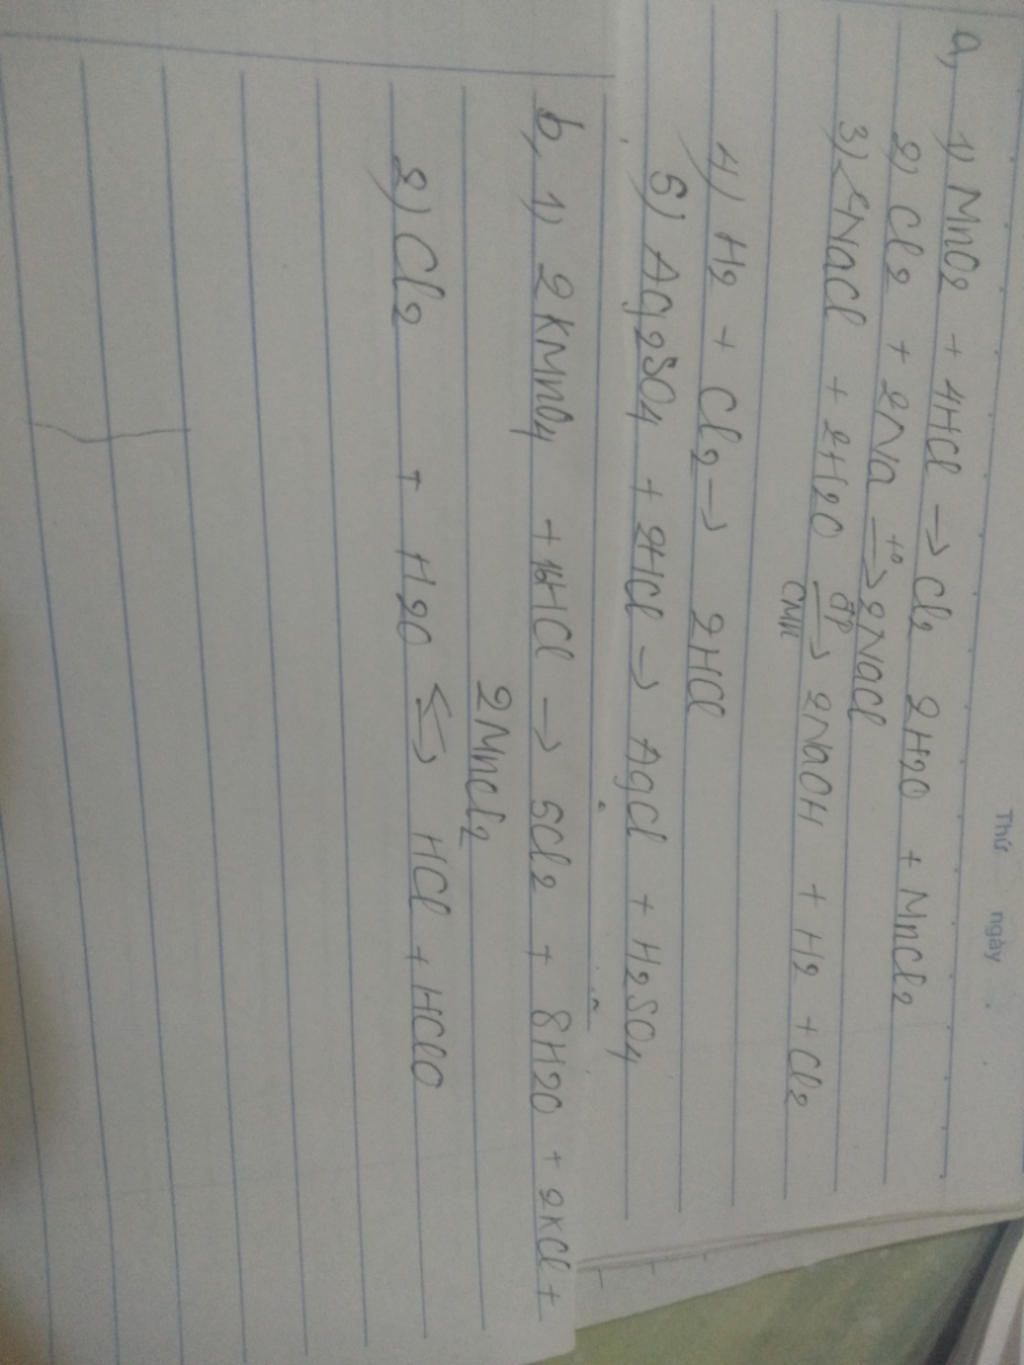 Thứ ngày
a, 1) MnO2 + 4HCl → Cl2 2H2O + MnCl2
2) Cl2 + 2Na t° → 2NaCl
3) 2NaCl + 2H2O đp → 2NaOH + H2 + Cl2
CMN
4) H2 + Cl2 → 2HCl
5) Ag2SO4 + 2HCl → AgCl + H2SO4
b, 1) 2KMnO4 + 16HCl → 5Cl2 + 8H2O + 2KCl +
2MnCl2
2) Cl2 + H2O ⇌ HCl + HClO